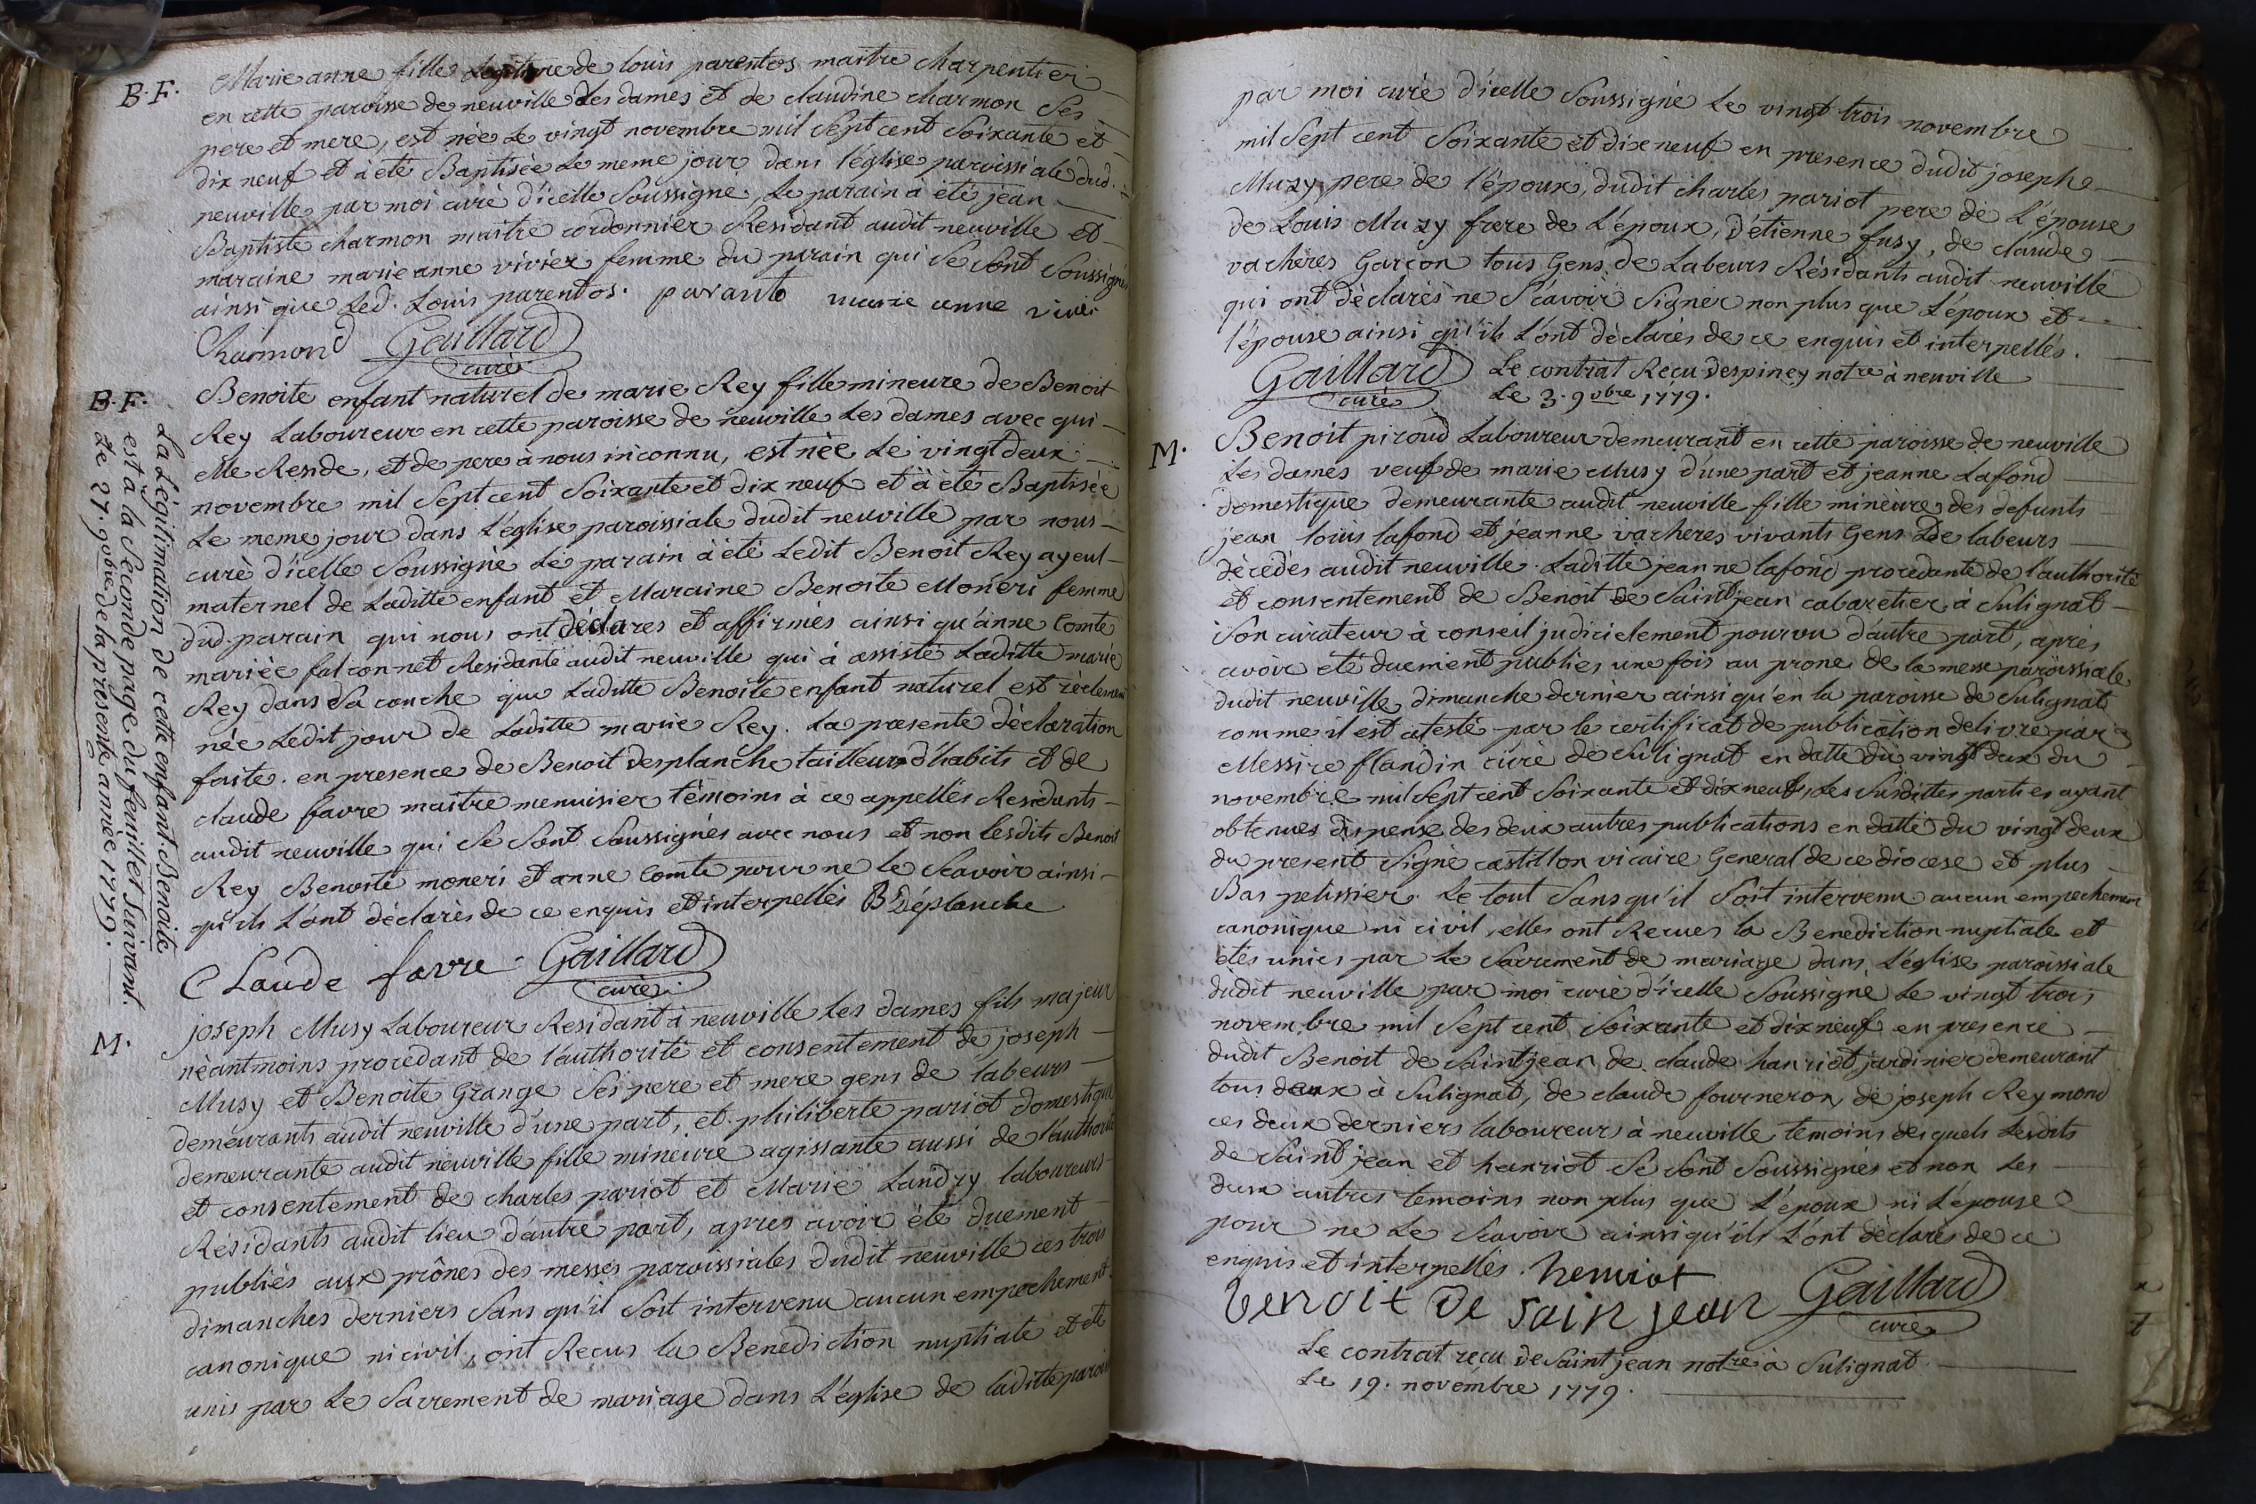 B. F.
Marie anne fille Legitime de louis parentos maitre charpentier
en cette paroisse de neuville les dames et de claudine charmon Ses
pere et mere, est née Le vingt novembre mil Sept cent Soixante et
dix neuf et à été Baptisée Le meme jour dans l'église paroissiale dud.
neuville par moi curé d'icelle Soussigné, Le parain à été jean
Baptiste charmon maitre cordonnier Residant audit neuville et
maraine marie anne vivier femme du parain qui Se Sont Soussignés
ainsi que Led. Louis parentos. paranto marie anne vivie
Charmond Gaillard
curé
B. F.
Benoite enfant naturel de marie Rey fille mineure de Benoit
Rey Laboureur en cette paroisse de neuville Les dames avec qui
elle Reside, et de pere à nous inconnu, est née Le vingt deux
novembre mil Sept cent Soixante et dix neuf et à été Baptisée
Le meme jour dans L'église paroissiale dudit neuville par nous
curé d'icelle Soussigné Le parain à été Ledit Benoit Rey ayeul
maternel de Laditte enfant et Maraine Benoite Moneri femme
dud. parain qui nous ont déclarés et affirmés ainsi qu'anne Comte
mariée falconnet Residante audit neuville qui à assisté Laditte marie
Rey dans Sa couche que Laditte Benoite enfant naturel est réelement
née Ledit jour de Laditte marie Rey. La presente déclaration
faite en presence de Benoit desplanche tailleur d'habits et de
claude favre maitre menuisier témoins à ce appellés Residants
audit neuville qui Se Sont Soussignés avec nous et non lesdits Benoit
Rey Benoite moneri et anne Comte pour ne le Scavoir ainsi
qu'ils L'ont déclarés de ce enquis et interpellés B Déplanche
Claude favre. Gaillard
curé.
La Légitimation de cette enfant Benoite
est à la Seconde page du feuillet Suivant.
Le 27. 9bre de la présente année 1779.
M.
joseph Musy Laboureur Residant à neuville Les dames fils majeur
néantmoins procedant de l'authorité et consentement de joseph
Musy et Benoite Grange Ses pere et mere gens de labeurs
demeurants audit neuville d'une part, et philiberte pariot domestique
demeurante audit neuville fille mineure agissante aussi de l'authorité
et consentement de charles pariot et Marie Landry laboureurs
Résidants audit lieu d'autre part, apres avoir été duement
publiés aux prônes des messes paroissiales dudit neuville ces trois
dimanches derniers Sans qu'il Soit intervenu aucun empechement
canonique ni civil, ont Recus la Benediction nuptiale et été
unis par Le Sacrement de mariage dans L'église de laditte paroisse
par moi curé d'icelle Soussigné Le vingt trois novembre
mil Sept cent Soixante et dix neuf en presence dudit josephe
Muzy pere de l'époux, dudit charles pariot pere de L'épouse
de Louis Muzy frere de L'époux, d'étienne fusy, de claude
vachères Garçon tous Gens de Labeurs Résidants audit neuville
qui ont déclarés ne Scavoir Signer non plus que L'époux et
l'épouse ainsi qu'ils L'ont déclarés de ce enquis et interpellés.
Gaillard Le contrat Recu despiney notre à neuville
curé Le 3. 9vbre 1779.
M.
Benoit piroud Laboureur demeurant en cette paroisse de neuville
Les dames veuf de marie Musy d'une part et jeanne Lafond
domestique demeurante audit neuville fille mineure des defunts
jean louis lafond et jeanne vacheres vivants Gens De labeurs
décedés audit neuville. Laditte jeanne lafond procedante de l'authorité
et consentement de Benoit de Saintjean cabaretier à Sulignat
Son curateur à conseil judicielement pourvu d'autre part, après
avoir été duement publies une fois au prone de la messe paroissiale
dudit neuville dimanche dernier ainsi qu'en la paroisse de Sulignat
comme il est atesté par le certificat de publication delivré par
Messire flandin curé de Sulignat en datte du vingt deux du
novembre mil Sept cent Soixante et dix neuf, Les Susdittes parties ayant
obtenues dispense des deux autres publications en datte du vingt deux
du present Signé castillon vicaire General de ce diocese et plus
Bas pelissier. Le tout Sans qu'il Soit intervenu aucun empechement
canonique ni civil, elles ont Recues la Benediction nuptiale et
étés unies par Le Sacrement de mariage dans L'église paroissiale
dudit neuville par moi curé d'icelle Soussigné Le vingt trois
novembre mil Sept cent Soixante et dix neuf en presence
dudit Benoit de Saintjean de claude hanriot jardinier demeurant
tous deux à Sulignat, de claude fourneron, de joseph Reymond
ces deux derniers laboureurs à neuville temoins desquels Lesdits
de Saint jean et hanriot Se Sont Soussignés et non Les
deux autres temoins non plus que L'époux ni L'épouse
pour ne Le Scavoir ainsi qu'ils L'ont déclarés de ce
enquis et interpellés. henriot
benoit de sain jean Gaillard
curé
Le contrat reçu de Saint jean notre à Sulignat
Le 19. novembre 1779.